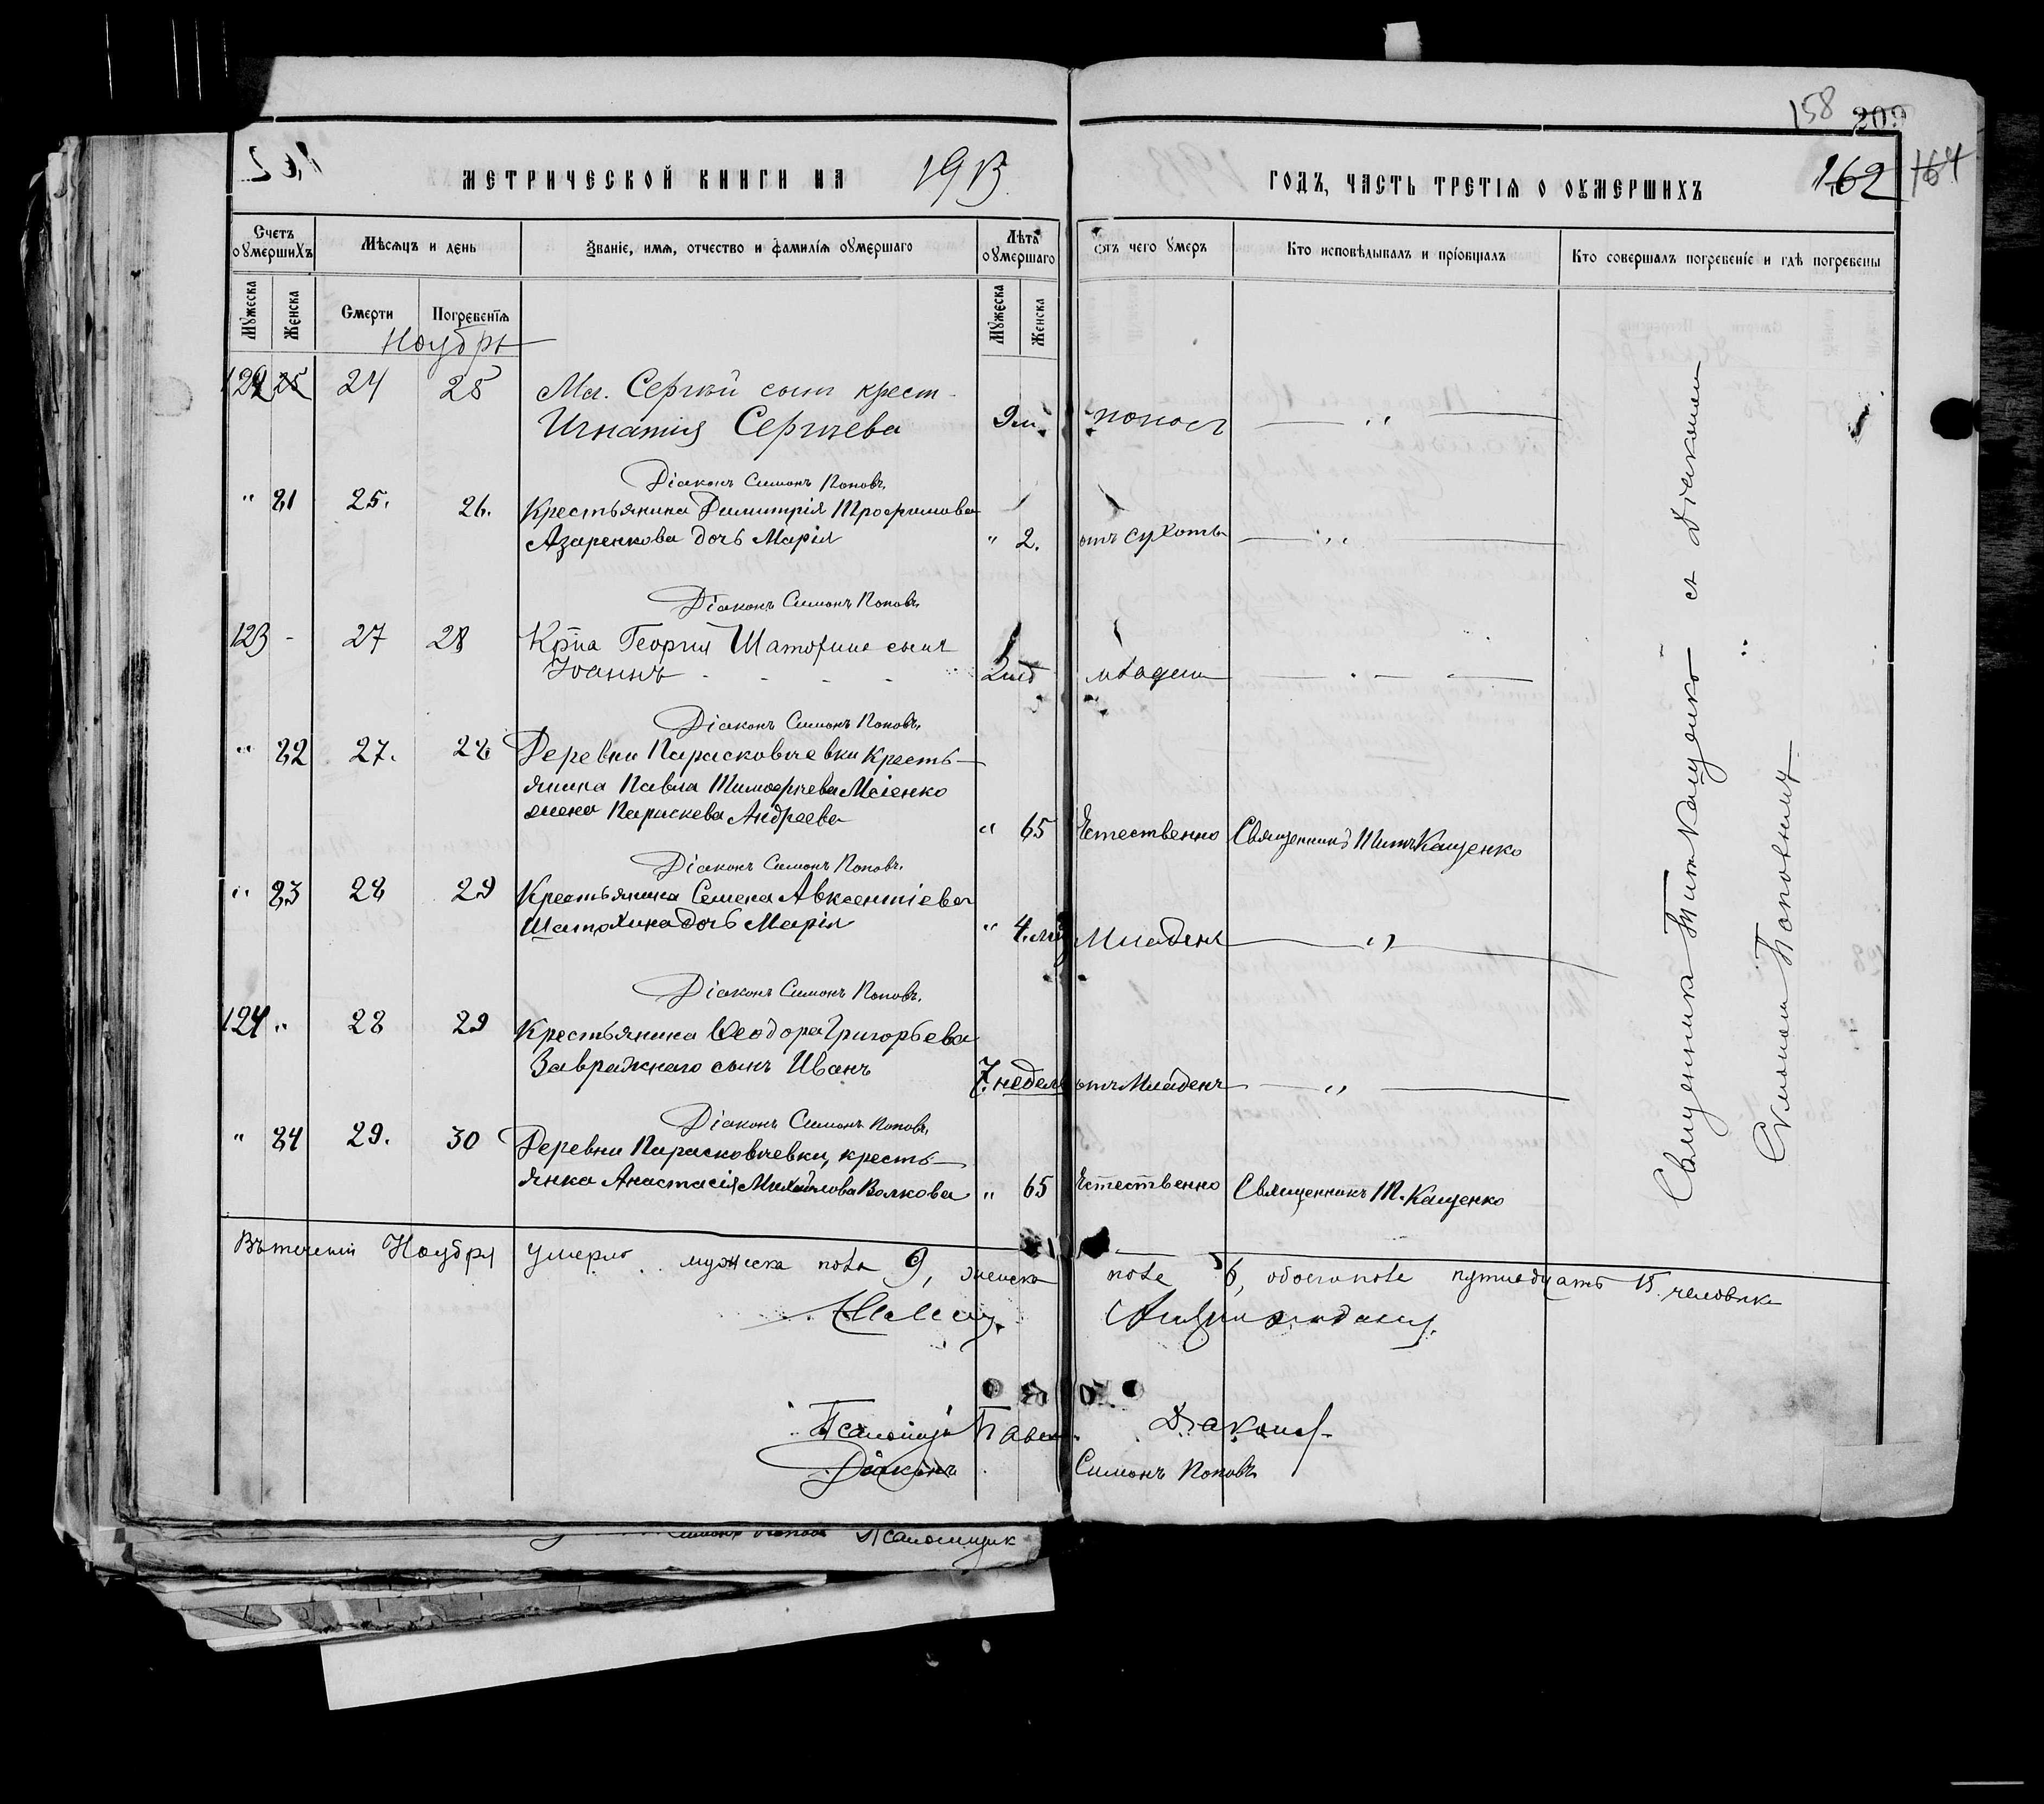 158 209
МЕТРИЧЕСКОЙ КНИГИ НА 1913 ГОДЪ, ЧАСТЬ ТРЕТІЯ О ОУМЕРШИХЪ 162 164
Счетъ оумершихъ
Мѣсяцъ и день
Званіе, имя, отчество и фамилія оумершаго
Лѣта оумершаго
Отъ чего умеръ
Кто исповѣдывалъ и пріобщалъ
Кто совершалъ погребеніе и гдѣ погребены
Мужеска Женска Смерти Погребенія Мужеска Женска
Ноубрь
122 25 24 25 Мл. Сергѣй сынъ крест-
Игнатія Сергѣева 9 м. понос „
Діаконъ Симонъ Поповъ.
" 81 25. 26. Крестьянина Димитрія Трофимова
Азаренкова дочь Марія " 2. отъ сухоты „
Діаконъ Симонъ Поповъ.
123 - 27 28 Крпа Георгія Шатохина сынъ
Іоаннъ младен
Діаконъ Симонъ Поповъ.
" 82 27. 28 Деревни Парасковіевки кресть-
янина Павла Тимофѣева Мсіенко
жена Параскева Андреева " 65 Естественно Священникъ Титъ Кащенко
Діаконъ Симонъ Поповъ.
" 83 28 29 Крестьянина Семена Авксентіева
Шатохина дочь Марія " 4. Младенч „
Діаконъ Симонъ Поповъ.
124 " 28 29 Крестьянина Ѳеодора Григорьева
Завражнаго сынъ Иванъ 7. недель отъ Младенч „
Діаконъ Симонъ Поповъ.
" 84 29. 30 Деревни Парасковіевки, кресть-
янка Анастасія Михайлова Волкова " 65 Естественно Священникъ Т. Кащенко
Священника Тит Кащенко съ Діакономъ
Симономъ Поповымъ
Въ теченіи Ноубря умерло мужеска пола 9, женска пола 6, обоего пола путнадцать 15 человѣка
Псаломщ Павел Дзаконов
Діаконъ Симонъ Поповъ
Псаломщик